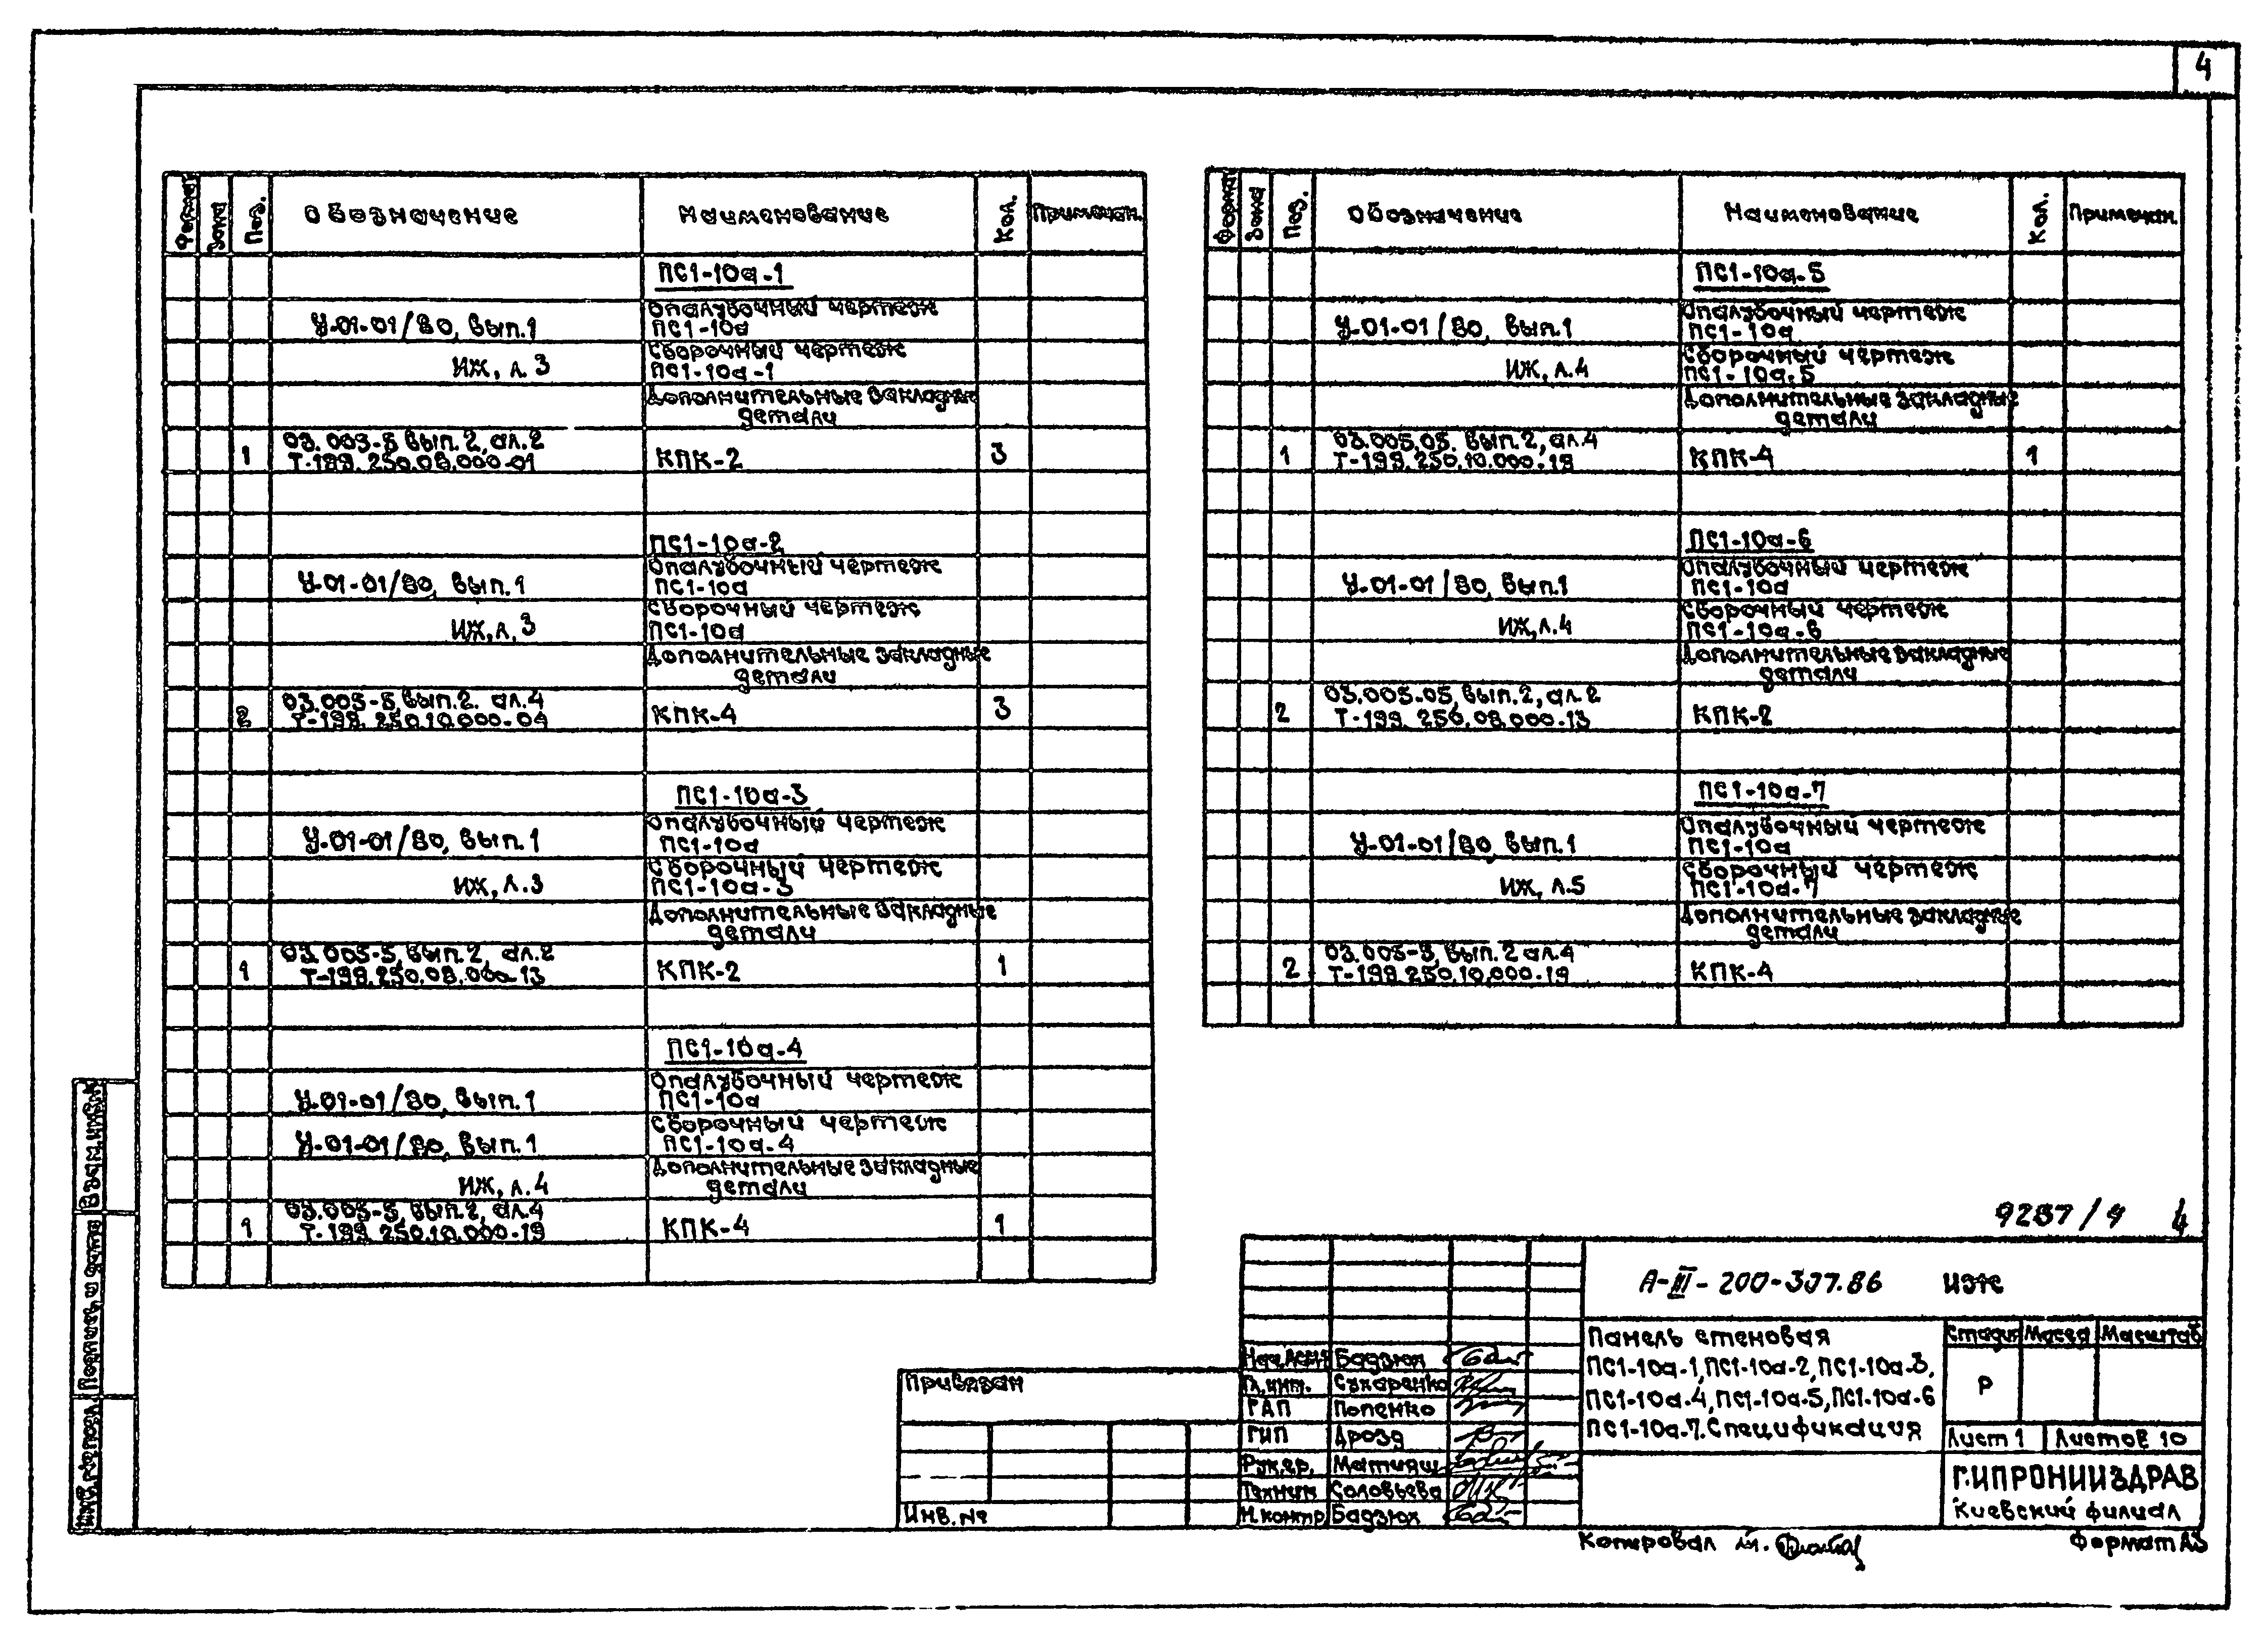 4
Формат Зона Поз. Обозначение Наименование Кол. Примечан.
ПС1-10а-1
Опалубочный чертеж
У-01-01/80, вып.1 ПС1-10а
Сборочный чертеж
ИЖ, л. 3 ПС1-10а-1
Дополнительные закладные
детали
03.005-5 вып.2, ал.2
1 Т-199.250.08.000-01 КПК-2 3
ПС1-10а-2
Опалубочный чертеж
У-01-01/80, вып.1 ПС1-10а
Сборочный чертеж
ИЖ, л, 3 ПС1-10а
Дополнительные закладные
детали
03.005-5, вып.2. ал.4
2 Т-199.250.10.000-04 КПК-4 3
ПС1-10а-3
Опалубочный чертеж
У-01-01/80, вып.1 ПС1-10а
Сборочный чертеж
ИЖ, л.3 ПС1-10а-3
Дополнительные закладные
детали
03.005-5, вып.2, ал.2
1 Т-199.250.08.000-13 КПК-2 1
ПС1-10а-4
Опалубочный чертеж
У-01-01/80, вып.1 ПС1-10а
Сборочный чертеж
У-01-01/80, вып.1 ПС1-10а-4
Дополнительные закладные
ИЖ, л.4 детали
03.005-5, вып.2, ал.4
1 Т-199.250.10.000-19 КПК-4 1
Формат Зона Поз. Обозначение Наименование Кол. Примечан.
ПС1-10а-5
Опалубочный чертеж
У-01-01/80, вып.1 ПС1-10а
Сборочный чертеж
ИЖ, л.4 ПС1-10а-5
Дополнительные закладные
детали
03.005.05. вып.2, ал.4
1 Т-199.250.10.000-19 КПК-4 1
ПС1-10а-6
Опалубочный чертеж
У-01-01/80, вып.1 ПС1-10а
Сборочный чертеж
ИЖ, л.4 ПС1-10а-6
Дополнительные закладные
детали
03.005-05, вып.2, ал.2
2 Т-199.250.08.000-13 КПК-2
ПС1-10а-7
Опалубочный чертеж
У-01-01/80, вып.1 ПС1-10а
Сборочный чертеж
ИЖ, л.5 ПС1-10а-7
Дополнительные закладные
детали
03.005-5, вып.2 ал.4
2 Т-199.250.10.000-19 КПК-4
Взам.инв.№
Подпись и дата
Инв.№подл.
9287/9 4
А-III-200-397.86 ИЖ
Панель стеновая
ПС1-10а-1, ПС1-10а-2, ПС1-10а-3,
ПС1-10а-4, ПС1-10а-5, ПС1-10а-6
ПС1-10а-7. Спецификация
Стадия Масса Масштаб
Р
Лист 1 Листов 10
ГИПРОНИИЗДРАВ
Киевский филиал
Бадзюх
Гл.инж. Сухаренко
ГАП Попенко
ГИП Дрозд
Рук.гр. Матияш
Техник Соловьева
Н.контр. Бадзюх
Привязан
Инв. №
Копировал
Формат А3